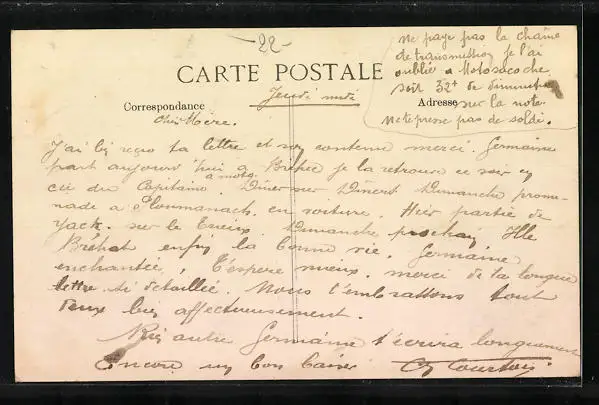 -22-
ne paye pas la chaîne
de transmission je l'ai
oublié a Motosacoche
soit 32f de diminution
sur la note
ne te presse pas de solder.
CARTE POSTALE
Correspondance
Adresse
Jeudi midi
Chère Mère.
J'ai bien reçu ta lettre et son contenu merci. Germaine
part aujourd'hui a Bréhec je la retrouve ce soir
a moto.
du Capitaine. Dîner sur Dinert Dimanche prome-
nade a Ploumanach en voiture. Hier partie de
Yack. sur le Trieux. Dimanche prochain Ile
Bréhat enfin la bonne vie. Germaine
enchantée, t'espère mieux. merci de ta longue
lettre si detaillée. Nous t'embrassons tout
deux bien affectueusement.
Rien autre Germaine t'écrira longuement
Encore un bon baiser Courtois